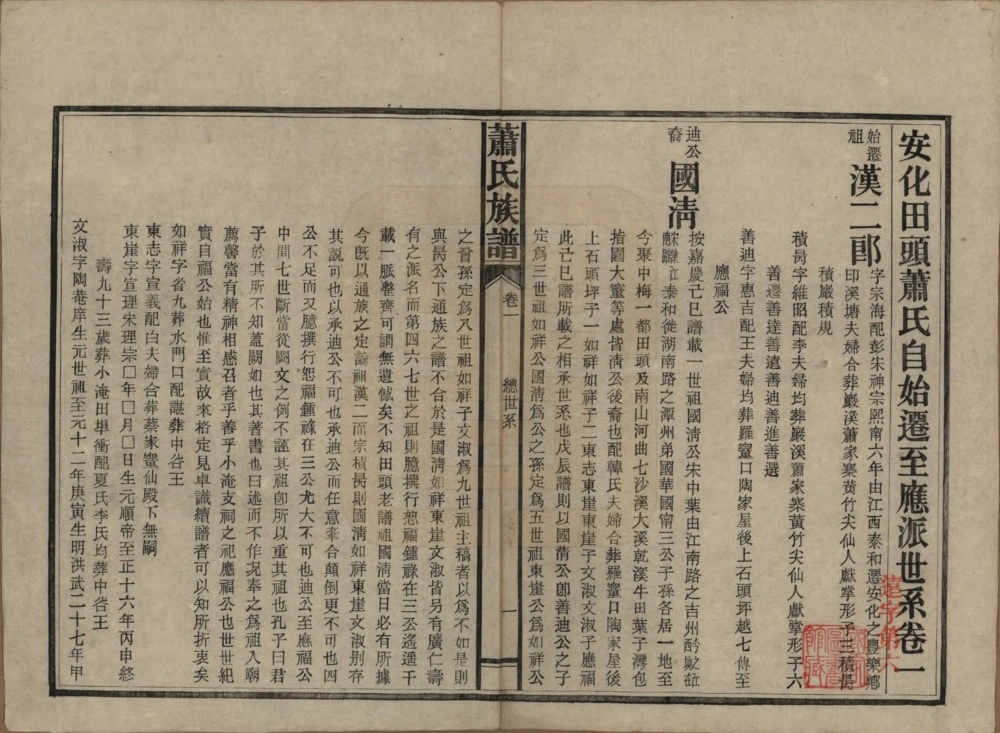 安化田頭蕭氏自始遷至應派世系卷一
始遷祖
漢二郎
字宗海配彭宋神宗熙甯六年由江西泰和遷安化之豐樂鄉
印溪塘夫婦合葬巖溪蕭家寨黃竹尖仙人獻掌形子三積長
積巖積規
積長字維昭配李夫婦均葬巖溪蕭家寨黃竹尖仙人獻掌形子六
善遷善達善遠善迪善進善選
善迪字惠吉配王夫婦均葬羅窰口陶家屋後上石頭坪越七傳至
應福公
迪公裔
國淸
按嘉慶己巳譜載一世祖國淸公宋中葉由江南路之吉州
泰和徙湖南路之潭州弟國華國甯三公子孫各居一地至
今聚中梅一都田頭及南山河曲七沙溪大溪乾溪牛田葉子灣包
指園大窰等處皆淸公後裔也配韓氏夫婦合葬羅窰口陶家屋後
上石頭坪子一如祥如祥子二東志東崖東崖子文淑文淑子應福
此己巳譜所載之相承世系也戊辰譜則以國淸公卽善迪公之子
定爲三世祖如祥公國淸爲公之孫定爲五世祖東崖公爲如祥公
蕭氏族譜
卷一
總世系
一
之晉孫定爲八世祖如祥子文淑爲九世祖主稿者以爲不如是則
與長公下通族之譜不合於是國淸如祥東崖文淑皆另有廣仁壽
有之派名而第四六七世之祖則臆撰行恕福鍾祿在三公遙遙千
載一脈整齊可謂無遺憾矣不知田頭老譜祖國淸當日必有所據
今既以通族之定論祖漢二而宗積長則國淸如祥東崖文淑別存
其說可也以承迪公不可也承迪公而任意牽合顛倒更不可也四
公不足而又臆撰行恕福鍾祿在三公尤大不可也迪公至應福公
中間七世斷當從闕文之例不誣其祖卽所以重其祖也孔子曰君
子於其所不知蓋闕如也其著書也曰述而不作况奉之爲祖入廟
薦馨當有精神相感召者乎善乎小淹支祠之祀應福公也世世紀
實自福公始也惟至實故來袼定見卓識續譜者可以知所折衷矣
如祥字省九葬水門口配諶葬中峆王
東志字宣義配白夫婦合葬蔡家窰仙殿下無嗣
東崖字宣理宋理宗口年口月口日生元順帝至正十六年丙申終
壽九十三歲葬小淹田壆衝配夏氏李氏均葬中峆王
文淑字陶菴庠生元世祖至元十二年庚寅生明洪武二十七年甲